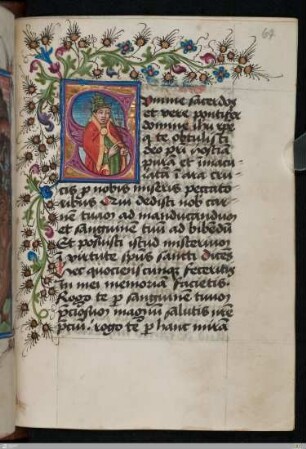 64
Summe sacerdos
et vere pontifex
domine ihu xpe
q te obtulisti
deo pri hostiã
purã et imacu
latã ĩ ara cru
cis p nobis miseris peccato
ribus Qui dedisti nob̄ car
nem tuam ad manducandum
et sanguinem tuũ ad bibẽdũ
Et posuisti istud misterium
ĩ virtute spũs sancti Dicẽs
Hec quocienscumque feceritis
In mei memoriam facietis
Rogo te p sanguinem tuum
p̃ciosum magnũ salutis nr̃e
p̃ciũ rogo te p hanc mirã